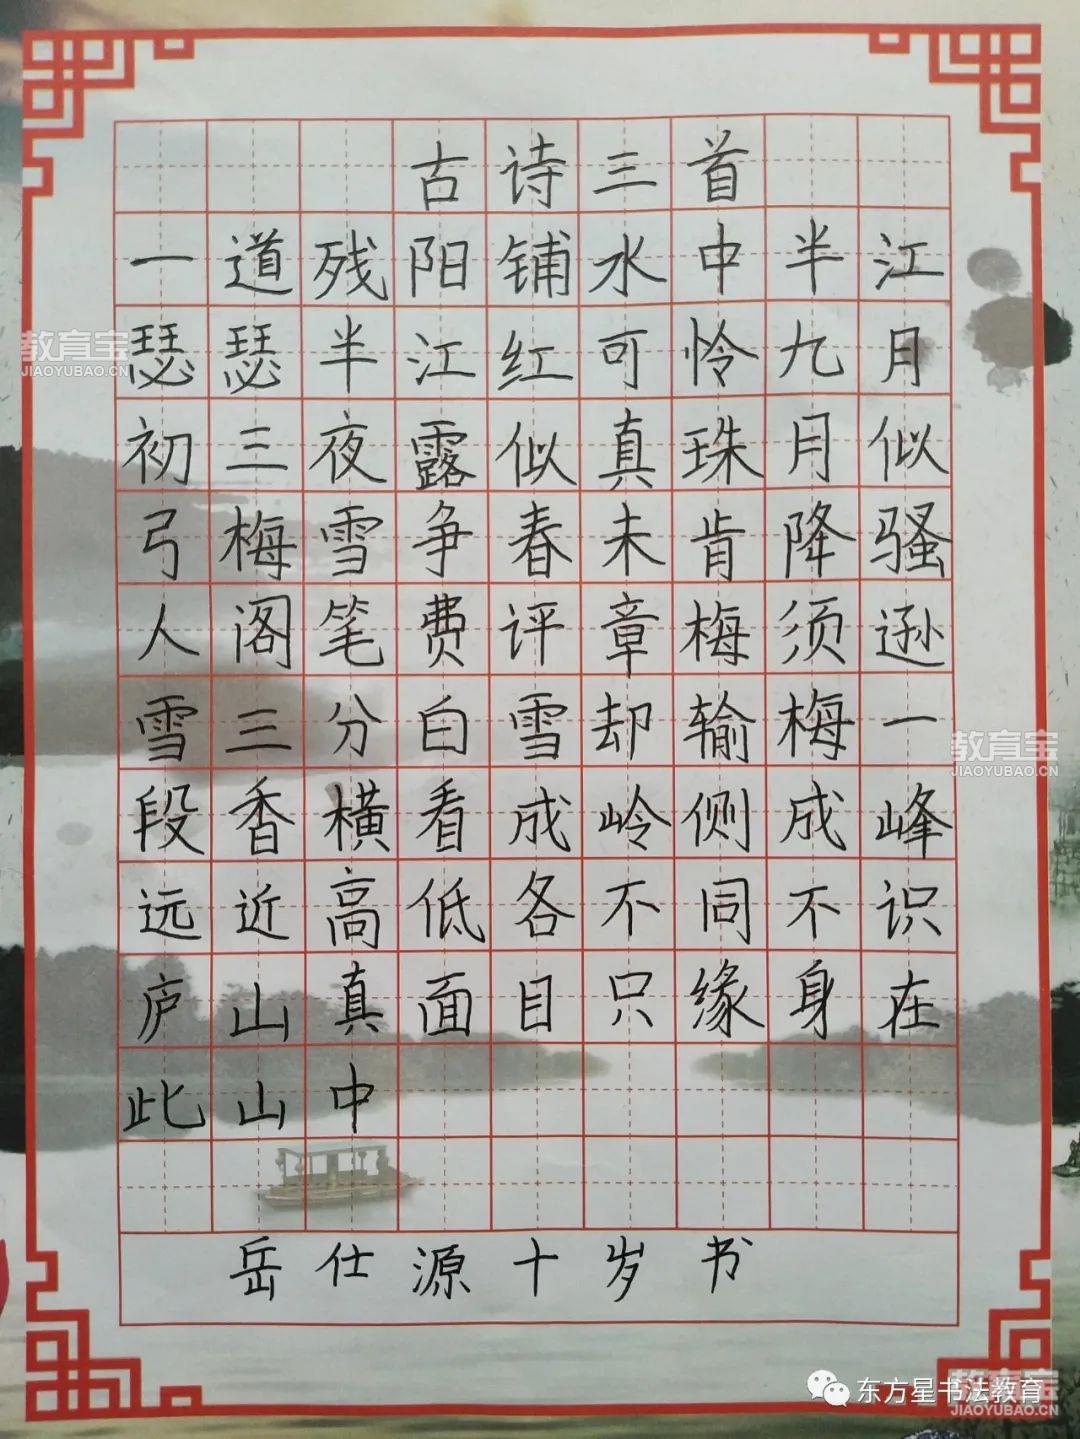 古诗三首
一道残阳铺水中半江
瑟瑟半江红可怜九月
初三夜露似真珠月似
弓梅雪争春未肯降骚
人阁笔费评章梅须逊
雪三分白雪却输梅一
段香横看成岭侧成峰
远近高低各不同不识
庐山真面目只缘身在
此山中
岳仕源十岁书
教育宝
JIAOYUBAO.CN
教育宝
JIAOYUBAO.CN
东方星书法教育
教育宝
JIAOYUBAO.CN